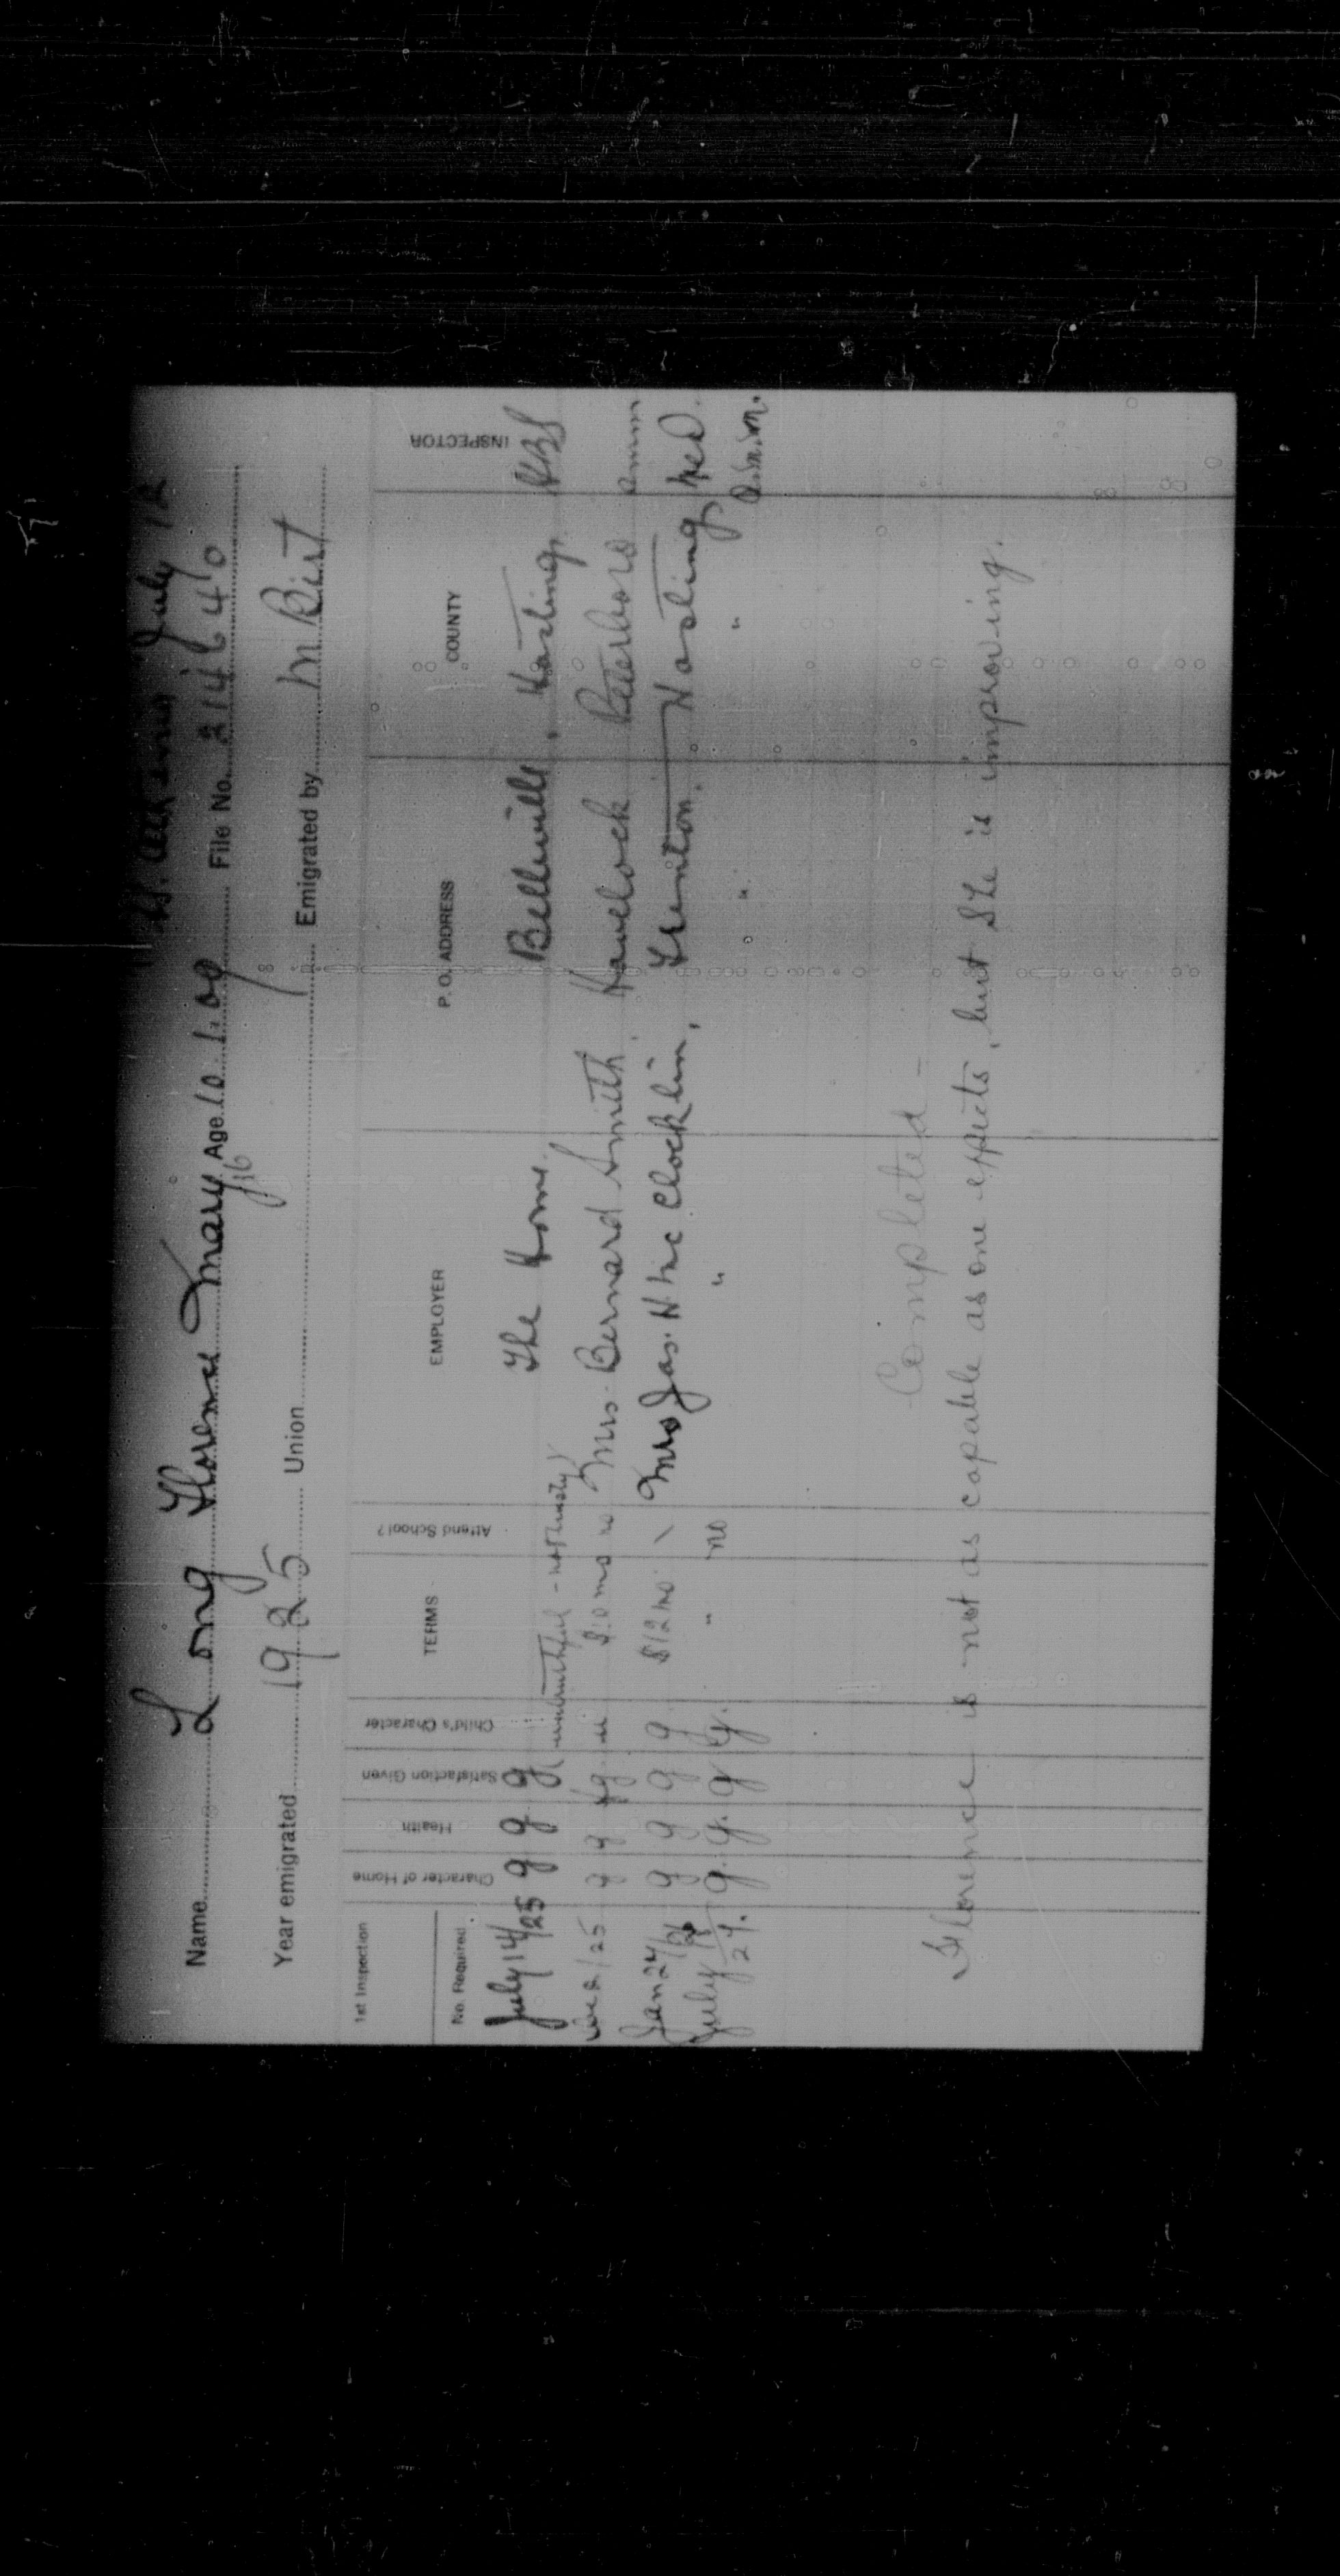 July 12
Name Long Florence Mary Age 10.1.09 File No. 214640
16
Year emigrated 1925 Union Emigrated by M Birt
1st Inspection
No. Required Character of Home Health Satisfaction Given Child's Character TERMS Attend School? EMPLOYER P. O. ADDRESS COUNTY INSPECTOR
July 14/25 g g g The Home. Belleville, Hastings
g (untruthful - not trusty)
Dec 2/25 g g fg u $10 mo no Mrs. Bernard Smith, Havelock Peterboro
Jan 24/ g g g g $12 mo \ Mrs Jas. H. McClocklin, Trenton, Hastings
July 18/27. g. g. g g. " no " " " A.M.M.
Completed -
Florence is not as capable as one expects, but she is improving.